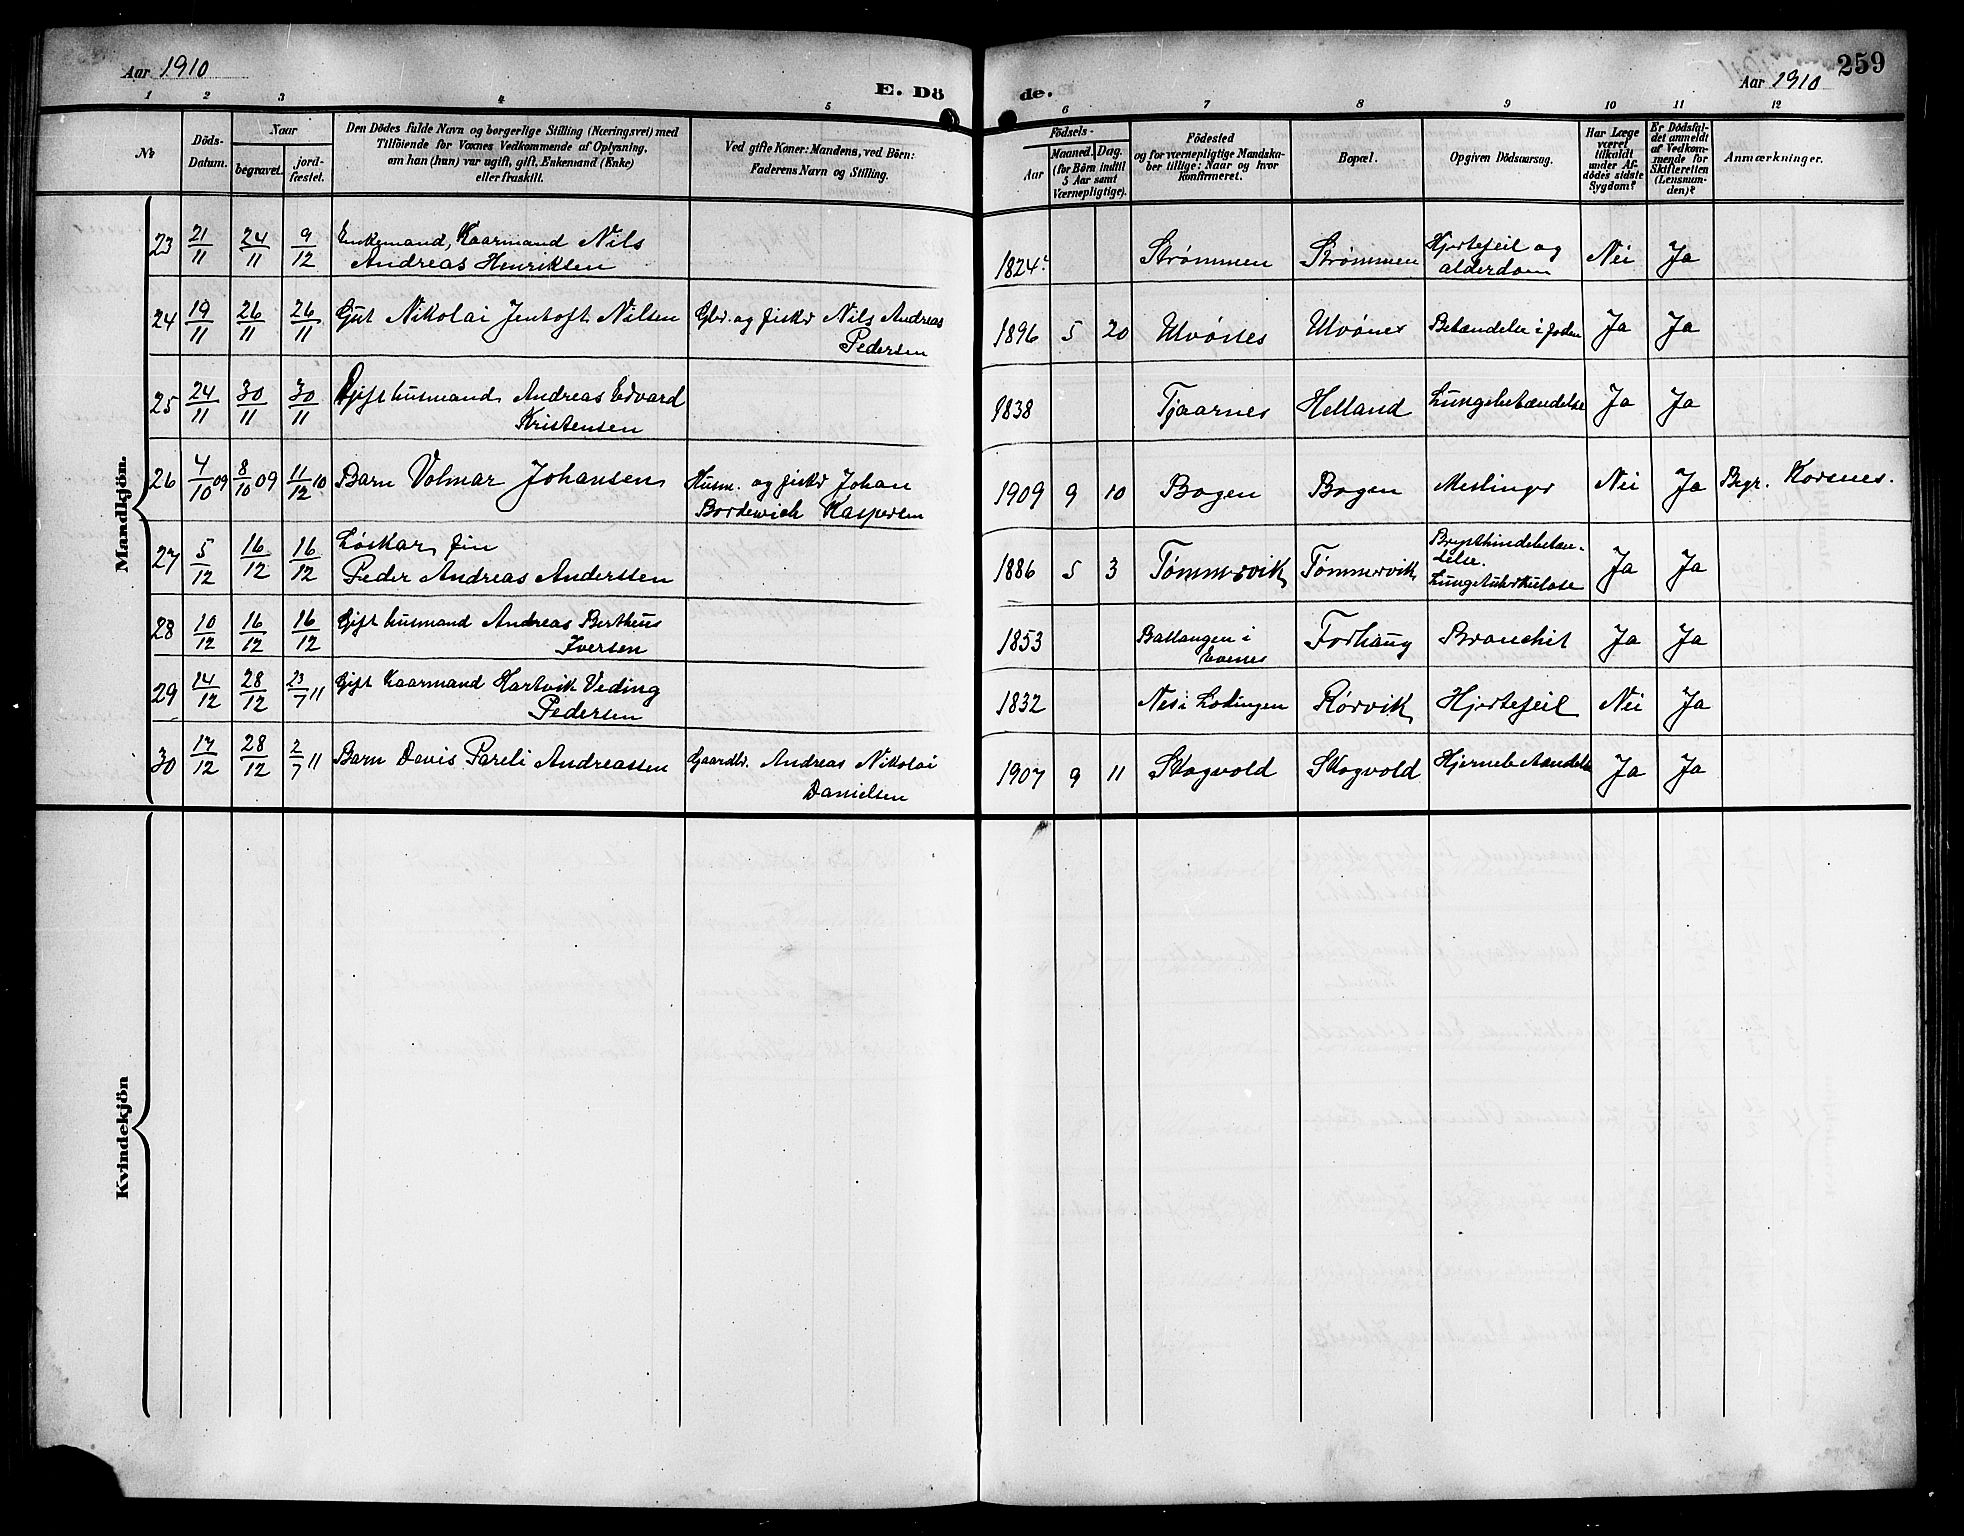 Aar 1910
E. Dö
de.
Aar 1910
259
1 2 3 4 5 6 7 8 9 10 11 12
No
Döds-
Datum.
Naar
begravet.
jord-
fæstet.
Den Dödes fulde Navn og borgerlige Stilling (Næringsvei) med
Tilföiende for Voxnes Vedkommende af Oplysning,
om han (hun) var ugift, gift, Enkemand (Enke)
eller fraskilt.
Ved gifte Koner: Mandens, ved Börn:
Faderens Navn og Stilling.
Födsels-
Aar
Maaned. Dag.
(for Börn indtil
5 Aar samt
Værnepligtige).
Födested
og for værnepligtige Mandska-
ber tillige: Naar og hvor
konfirmeret.
Bopæl.
Opgiven Dödsaarsag.
Har Læge
været
tilkaldt
under Af-
dödes sidste
Sygdom?
Er Dödsfal-
det anmeldt
af Vedkom-
mende for
Skifteretten
(Lensman-
den)?
Anmærkninger.
Mandkjön.
23 21/11 24/11 9/12 Enkemand, Kaarmand Nils
Andreas Henriksen
1824 Strømmen Strømmen Hjertefeil og
alderdom Nei Ja
24 19/11 26/11 26/11 Gut Nikolai Jentoft Nilsen Gbr. og fisker Nils Andreas
Pedersen
1896 5 20 Ulvönes Ulvönes Betændelse i foden Ja Ja
25 24/11 30/11 30/11 Gift husmand Andreas Edvard
Kristensen
1838 Tjaarnes Helland Lungebetændelse Ja Ja
26 4/10 09 8/10 09 11/12 10 Barn Volmar Johansen Husm. og fisker Johan
Bordewich Kaspersen
1909 9 10 Bogen Bogen Meslinger Nei Ja Begr. Korsnes.
27 5/12 16/12 16/12 Løskar, fin
Peder Andreas Anderssen
1886 5 3 Tømmervik Tømmervik Brysthindebetæn-
delse.
Lungetuberkulose Ja Ja
28 10/12 16/12 16/12 Gift husmand Andreas Bertheus
Iversen
1853 Ballangen i
Evenes Forhaug Bronchit Ja Ja
29 14/12 28/12 23/7 11 Gift Kaarmand Hartvik Veding
Pedersen
1832 Nes i Lødingen Rørvik Hjertefeil Nei Ja
30 17/12 28/12 2/7 11 Barn Davis Pareli Andreassen Gaardbr. Andreas Nikolai
Danielsen
1907 9 11 Skogvold Skogvold Hjernebetændelse Ja Ja
Kvindekjön